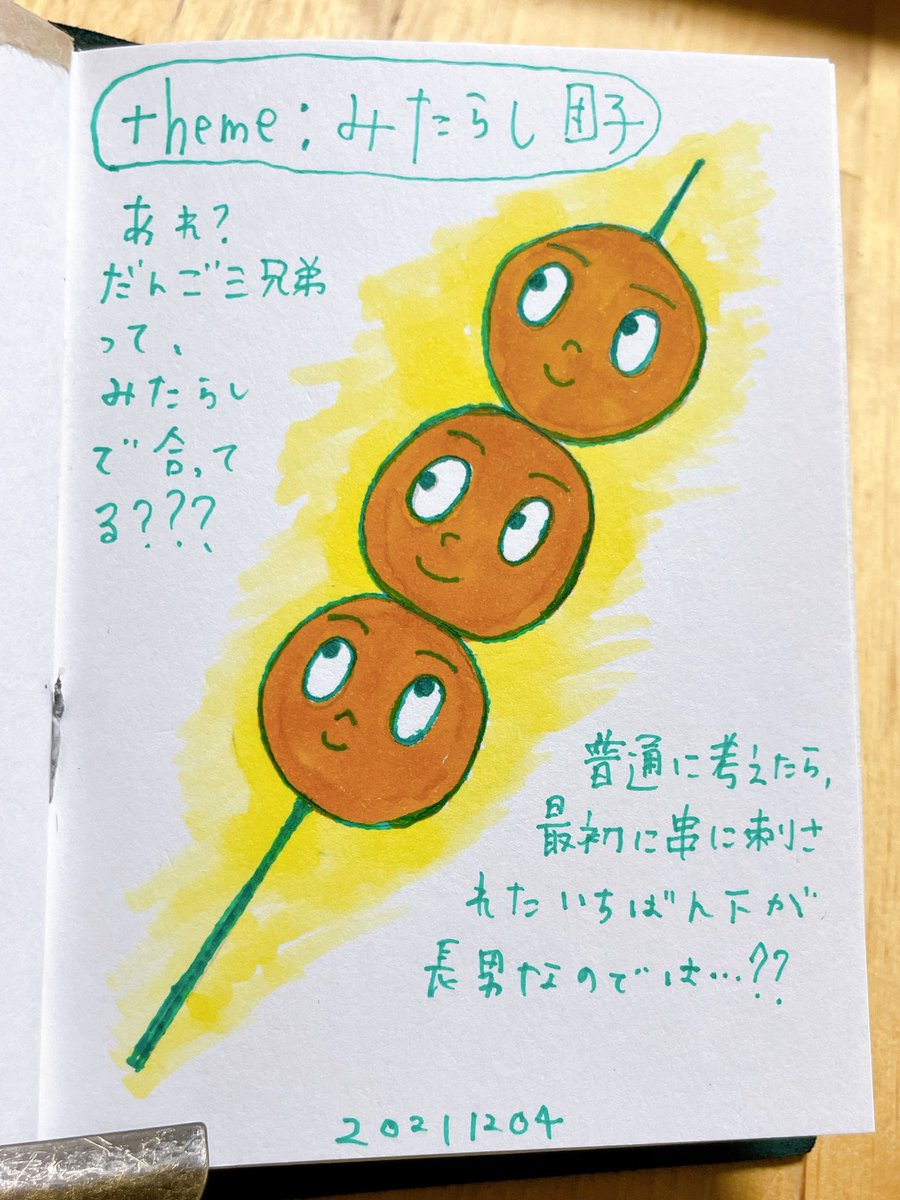 theme:みたらし団子
あれ?
だんご三兄弟
って、
みたらし
で合って
る???
普通に考えたら,
最初に串に刺さ
れたいちばん下が
長男なのでは…??
20211204